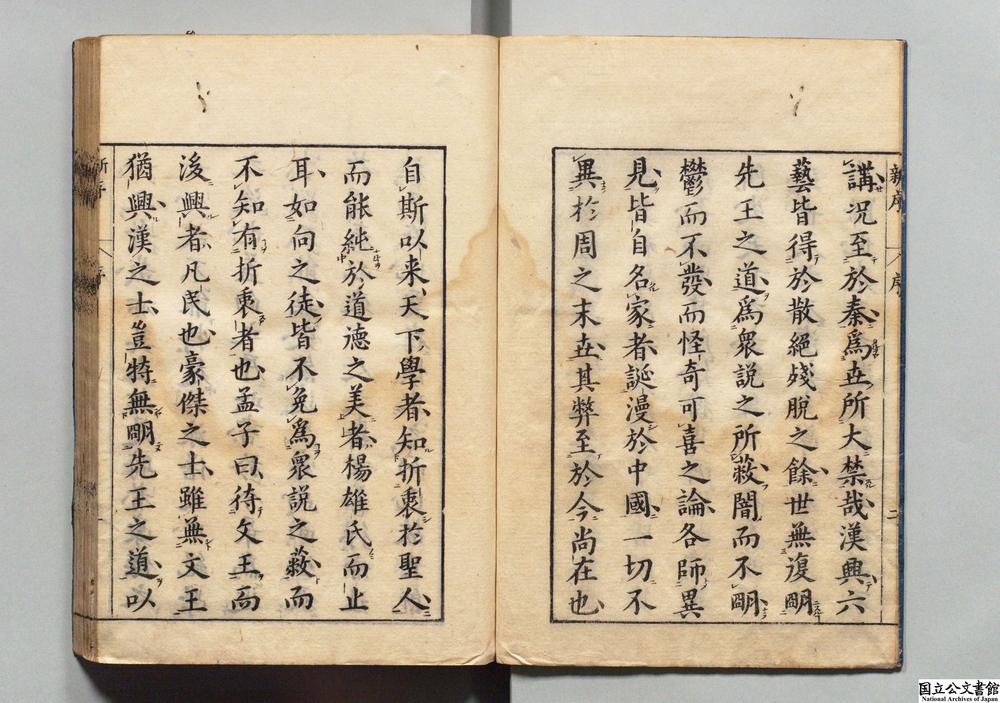 講况至於秦爲世所大禁哉漢興六
藝皆得於散絕殘脫之餘世無復明
先王之道爲衆說之所蔽闇而不明
鬱而不發而怪奇可喜之論各師異
見皆自名家者誕漫於中國一切不
異於周之末世其弊至於今尚在也
自斯以来天下學者知折衷於聖人
而能純於道德之美者楊雄氏而止
耳如向之徒皆不免爲衆說之蔽而
不知有折衷者也孟子曰待文王而
後興者凡民也豪傑之士雖無文王
猶興漢之士豈特無明先王之道以
新序
序
二
新序
序
国立公文書館
National Archives of Japan